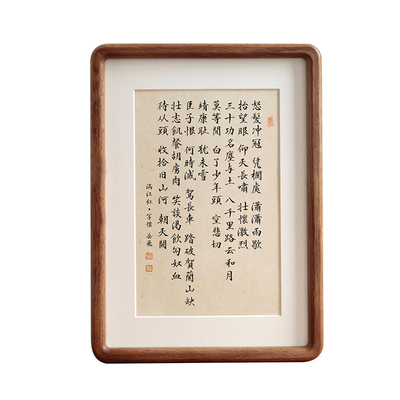 怒髮冲冠 凭欄處 瀟瀟雨歇
抬望眼 仰天長嘯 壯懷激烈
三十功名塵与土 八千里路云和月
莫等閒 白了少年頭 空悲切
靖康耻 犹未雪
臣子恨 何時滅 駕長車 踏破賀蘭山缺
壮志飢餐胡虜肉 笑談渴飲匈奴血
待从頭 收拾旧山河 朝天闕
满江红·写懷 岳飛